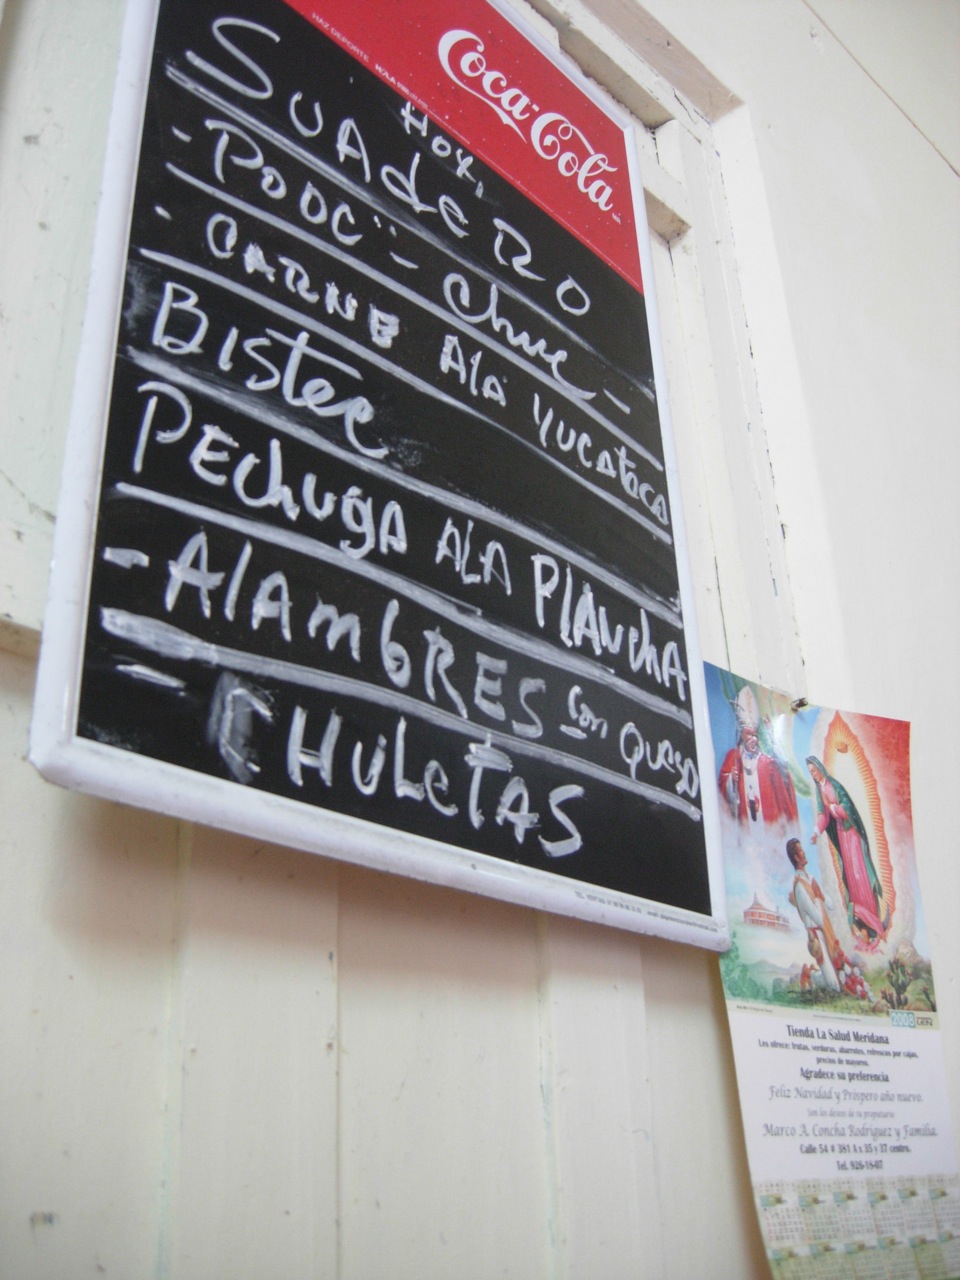 Coca-Cola
HAZ DEPORTE
Hoy,
SUAdeRO
- POOC:- Chuc -
- CARNE Ala YUCAteca
BISTec
PEchugA ALA PLANchA
- AlAmbRES con QUESO
- CHULeTAS
2008
Tienda La Salud Meridana
Les ofrece: frutas, verduras, abarrotes, refrescos por cajas,
precios de mayoreo.
Agradece su preferencia
Feliz Navidad y Próspero año nuevo.
Son los deseos de su propietario
Marco A. Concha Rodríguez y Familia.
Calle 54 # 381 A x 35 y 37 centro.
Tel. 926-18-07